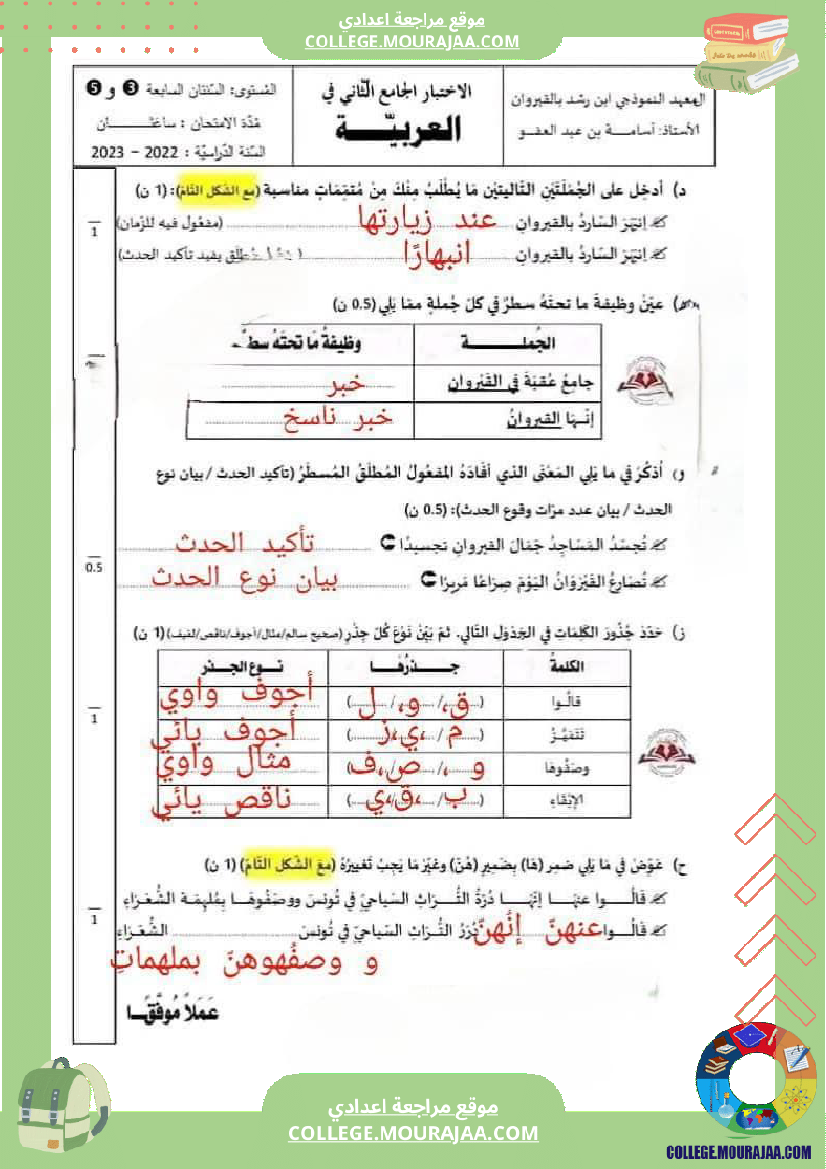 موقع مراجعة اعدادي
COLLEGE.MOURAJAA.COM
المعهد النموذجي ابن رشد بالقيروان
الأستاذ: أسامــة بن عبد العفو
الاختبار الجامع الثّاني في
العربيّــة
المستوى: السّنتان السابعة 3 و 5
مدّة الامتحان : ساعتــان
السنة الدّراسيّة : 2022 – 2023
د) أدخِل على الجُمْلَتَيْنِ التَّاليتيْن مَا يُطْلَبُ مِنْكَ مِنْ مُتمِّمَاتٍ مناسبة (مع الشّكل التّامّ): (1 ن)
1
اِنْبَهَرَ السّاردُ بالقيروانِ عند زيارتها (مفعول فيه للزّمان)
اِنْبَهَرَ السّاردُ بالقيروانِ انبهارًا يفيد تأكيد الحدث)
عيّنْ وظيفةَ ما تحتَهُ سطرٌ في كلّ جُملةٍ ممّا يَلِي (0.5 ن)
الجُملــــــة
وظيفةُ مَا تحتَهُ سط
جامعُ عُقبَةَ في القَيْروان
خبر
إنّها القيروانُ
خبر ناسخ
و) اُذكُرْ في ما يَلِي المَعْنَى الذي أفَادَهُ المَفعُولُ المُطلَقُ المُسطّرُ (تأكيد الحدث / بيان نوع
الحدث / بيان عدد مرّات وقوع الحدث): (0.5 ن)
تُجسّدُ المَسَاجِدُ جَمَالَ القيروانِ تجسيدًا تأكيد الحدث
0.5
تُصَارعُ القَيْرَوَانُ اليَوْمَ صِرَاعًا مَرِيرًا بيان نوع الحدث
ز) حَدّدْ جُذُورَ الكَلِمَاتِ في الجَدْوَلِ التّالي. ثمّ بَيّنْ نَوْعَ كُلّ جِذْرٍ (صحيح سالم/مثال/أجوف/ناقص/لفيف) (1 ن)
الكلمةُ
جــذرُهَــا
نــوع الجــذر
قالُوا
(ق، / و، / ل)
أجوف واوي
1
تَتَميّـزُ
(م / ،ي، / ز)
أجوف يائي
وصَفُوهَا
(و / ،ص، / ف)
مثال واوي
الإبْقَاءِ
(ب، / ق، / ي)
ناقص يائي
ح) عَوّض في مَا يَلي ضمير (هَا) بِضَمِيرِ (هُنّ) وغيّرْ مَا يَجِبُ تَغييرُهُ (معَ الشّكل التّامّ) (1 ن)
قَالُــوا عَنهَـا إنّهَـا دُرّةُ التُّــرَاثِ السّيَاحِيِّ في تُونسَ ووصَفُوهَـا بِمُلهِمَة الشُّعَـرَاءِ
1
قَالُــوا عنهنّ إنّهنّ دُرَرُ التُّــرَاثِ السّيَاحِيِّ في تُونسَ الشُّعَـرَاءِ
و وصفُوهنّ بملهماتِ
عَمَلاً مُوفّقًــا
موقع مراجعة اعدادي
COLLEGE.MOURAJAA.COM
COLLEGE.MOURAJAA.COM